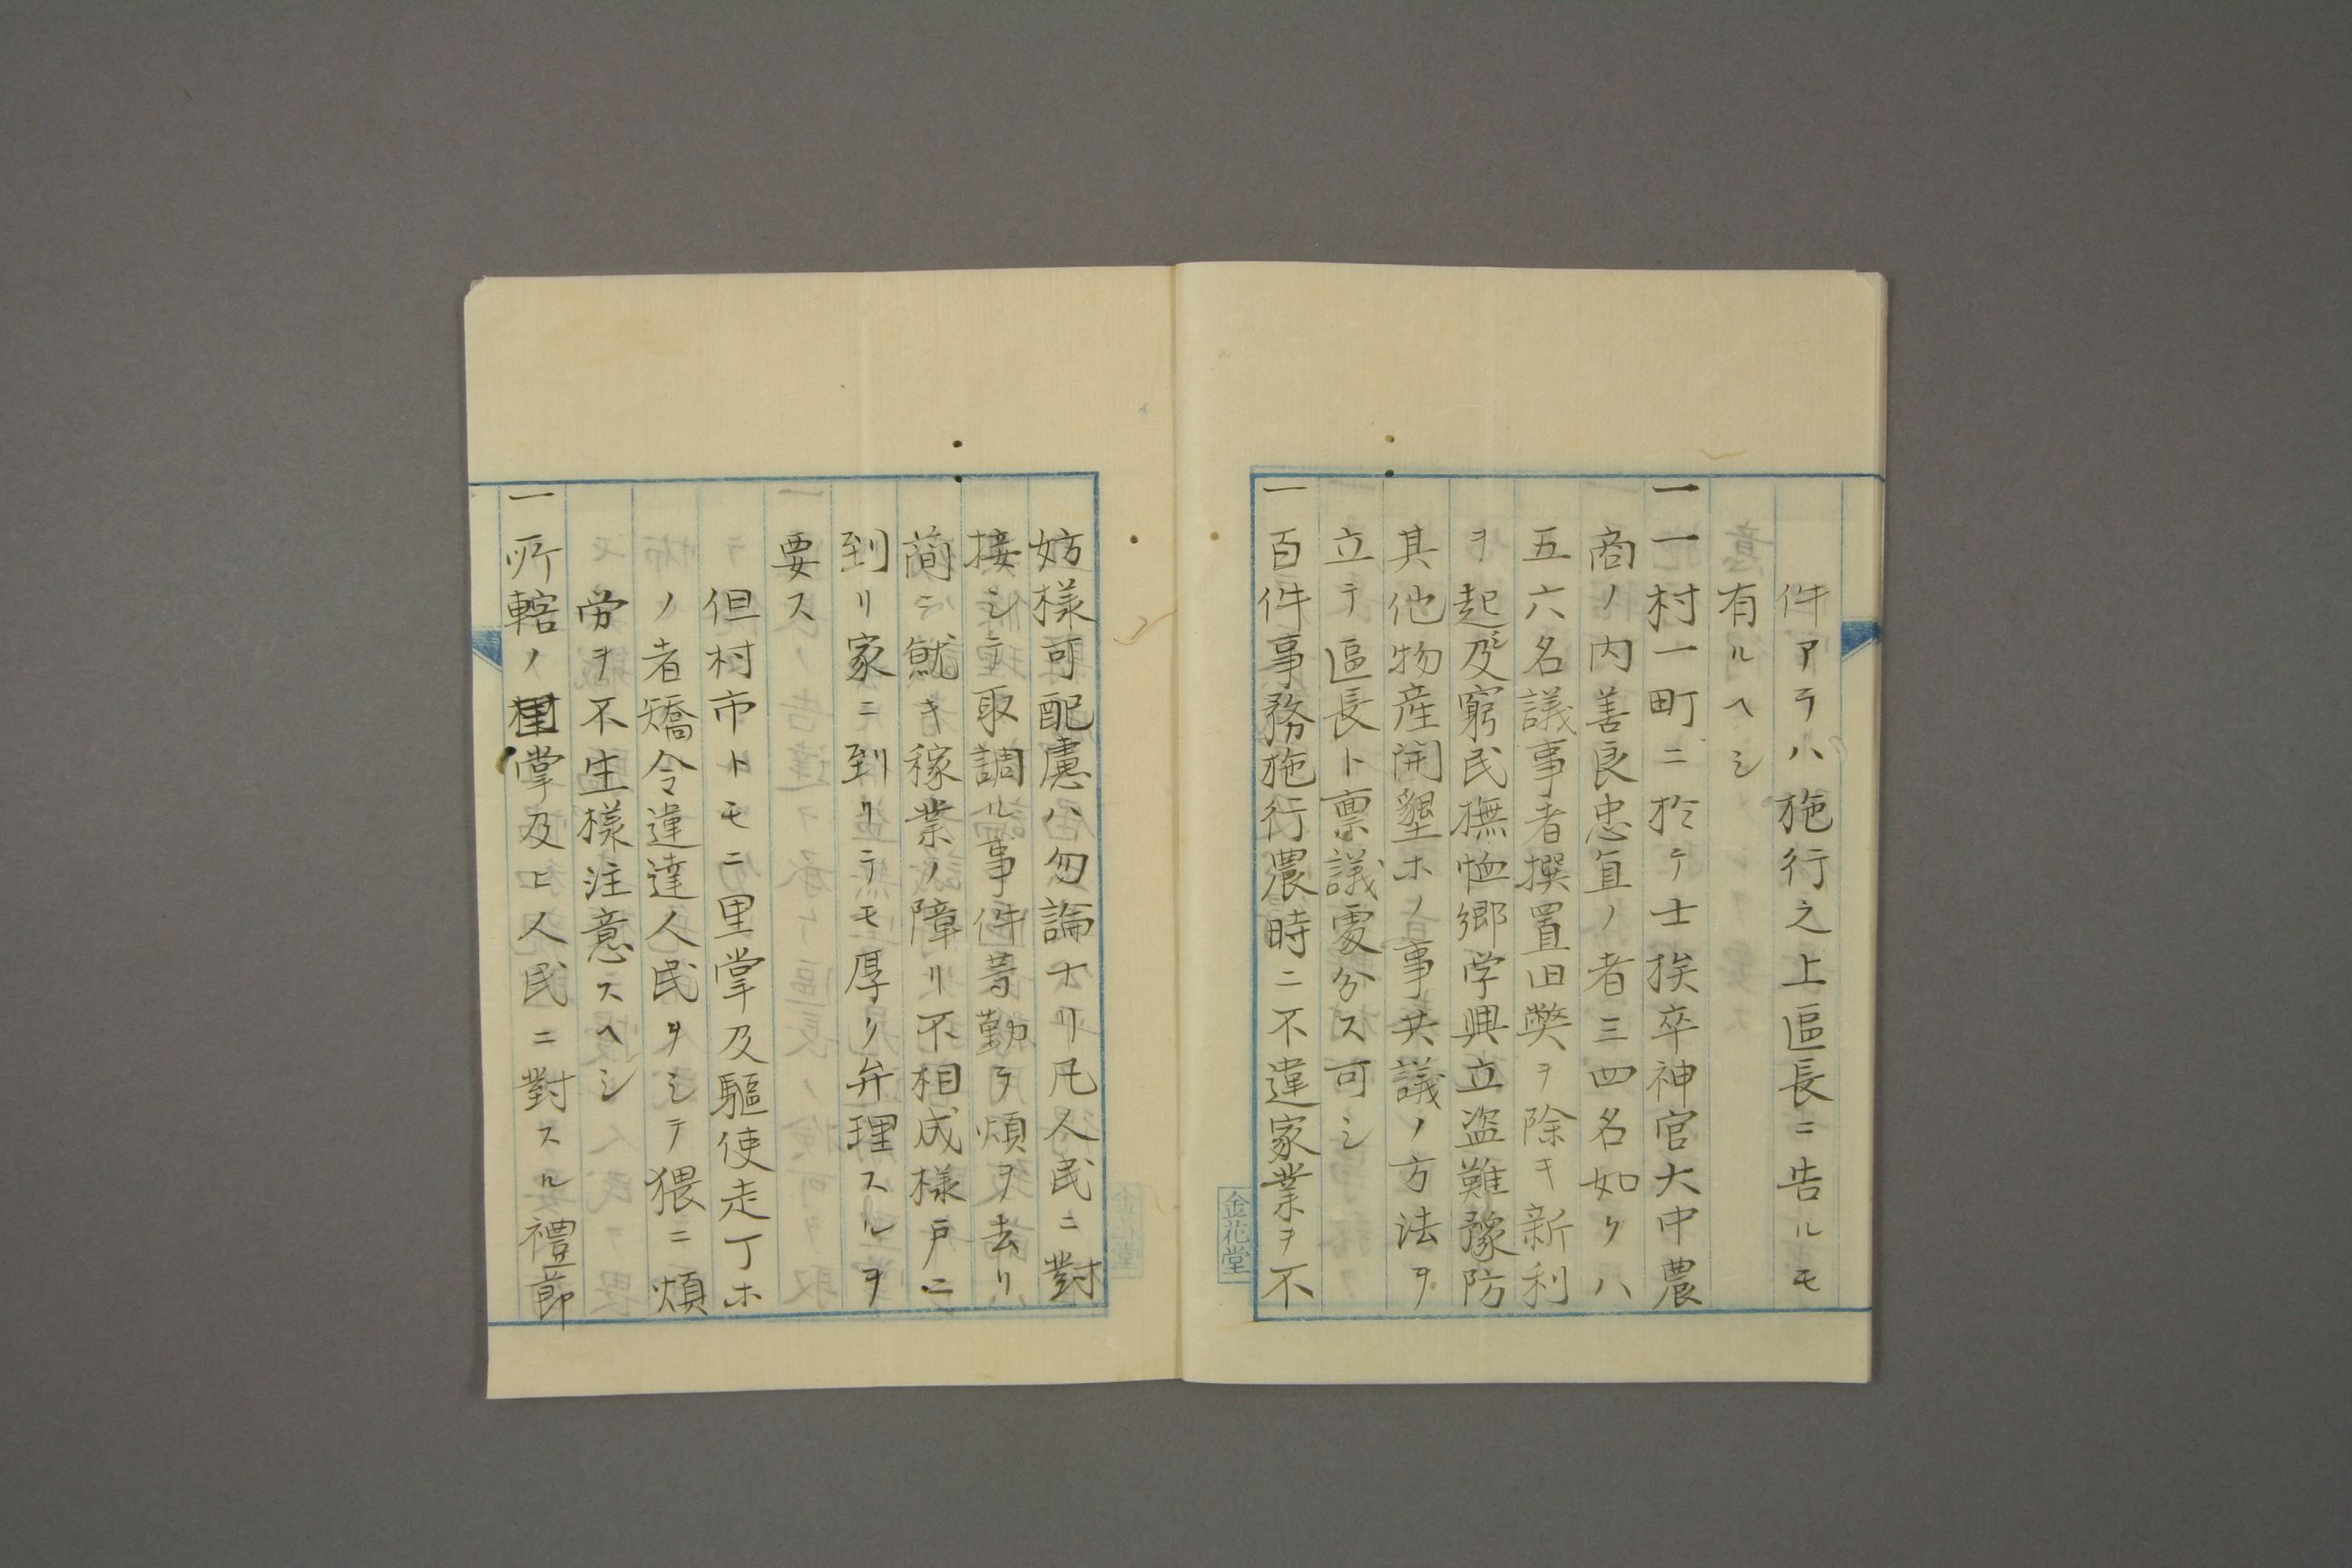 件アラハ施行之上區長ニ告ルモ
有ルヘシ
一一村一町ニ於テ士族卒神官大中農
商ノ内善良忠直ノ者三四名如クハ
五六名議事者撰置旧弊ヲ除キ新利
ヲ起及窮民撫恤郷学興立盗難豫防
其他物産開墾ホノ事共議ノ方法ヲ
立テ區長ト禀議處分ス可シ
一百件事務施行農時ニ不違家業ヲ不
金花堂
妨様可配慮ハ勿論ナリ凡人民ニ對
接シテ取調ル事件等勤テ煩ヲ去リ
簡ニ就キ稼業ノ障リ不相成様戸ニ
到リ家ニ到リテモ厚ク弁理スルヲ
要ス
但村市トモニ里掌及驅使走丁ホ
ノ者矯令違達人民ヲシテ猥ニ煩
労ヲ不生様注意スヘシ
一所轄ノ里掌及ヒ人民ニ對スル禮節